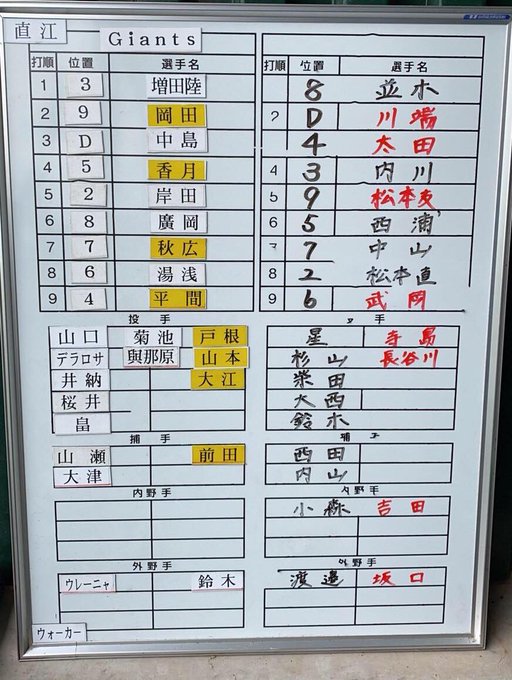 直江 Giants
打順 位置 選手名
1 3 増田陸
2 9 岡田
3 D 中島
4 5 香月
5 2 岸田
6 8 廣岡
7 7 秋広
8 6 湯浅
9 4 平間
投手
山口 菊池 戸根
デラロサ 與那原 山本
井納 大江
桜井
畠
捕手
山瀬 前田
大津
内野手
外野手
ウレーニャ 鈴木
ウォーカー
打順 位置 選手名
8 並木
2 D 川端
4 太田
4 3 内川
5 9 松本友
6 5 西浦
7 7 中山
8 2 松本直
9 6 武岡
手
星 寺島
杉山 長谷川
柴田
大西
鈴木
捕手
西田
内山
内野手
小森 吉田
外野手
渡邉 坂口